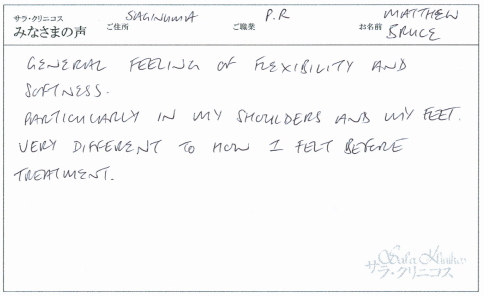 サラ・クリニコス
みなさまの声 ご住所 SAGINUMA ご職業 P.R お名前 MATTHEW BRUCE
GENERAL FEELING OF FLEXIBILITY AND
SOFTNESS.
PARTICULARLY IN MY SHOULDERS AND MY FEET.
VERY DIFFERENT TO HOW I FELT BEFORE
TREATMENT.
サラ・クリニコス